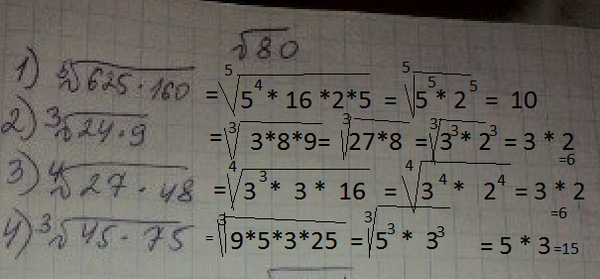 √80
1) ⁵√625·160 = ⁵√5⁴* 16 *2*5 = ⁵√5⁵* 2⁵ = 10
2) ³√24·9 = ³√3*8*9 = ³√27*8 = ³√3³* 2³ = 3 * 2
=6
3) ⁴√27·48 = ⁴√3³* 3 * 16 = ⁴√3⁴* 2⁴ = 3 * 2
=6
4) ³√45·75 = ³√9*5*3*25 = ³√5³* 3³ = 5 * 3 =15